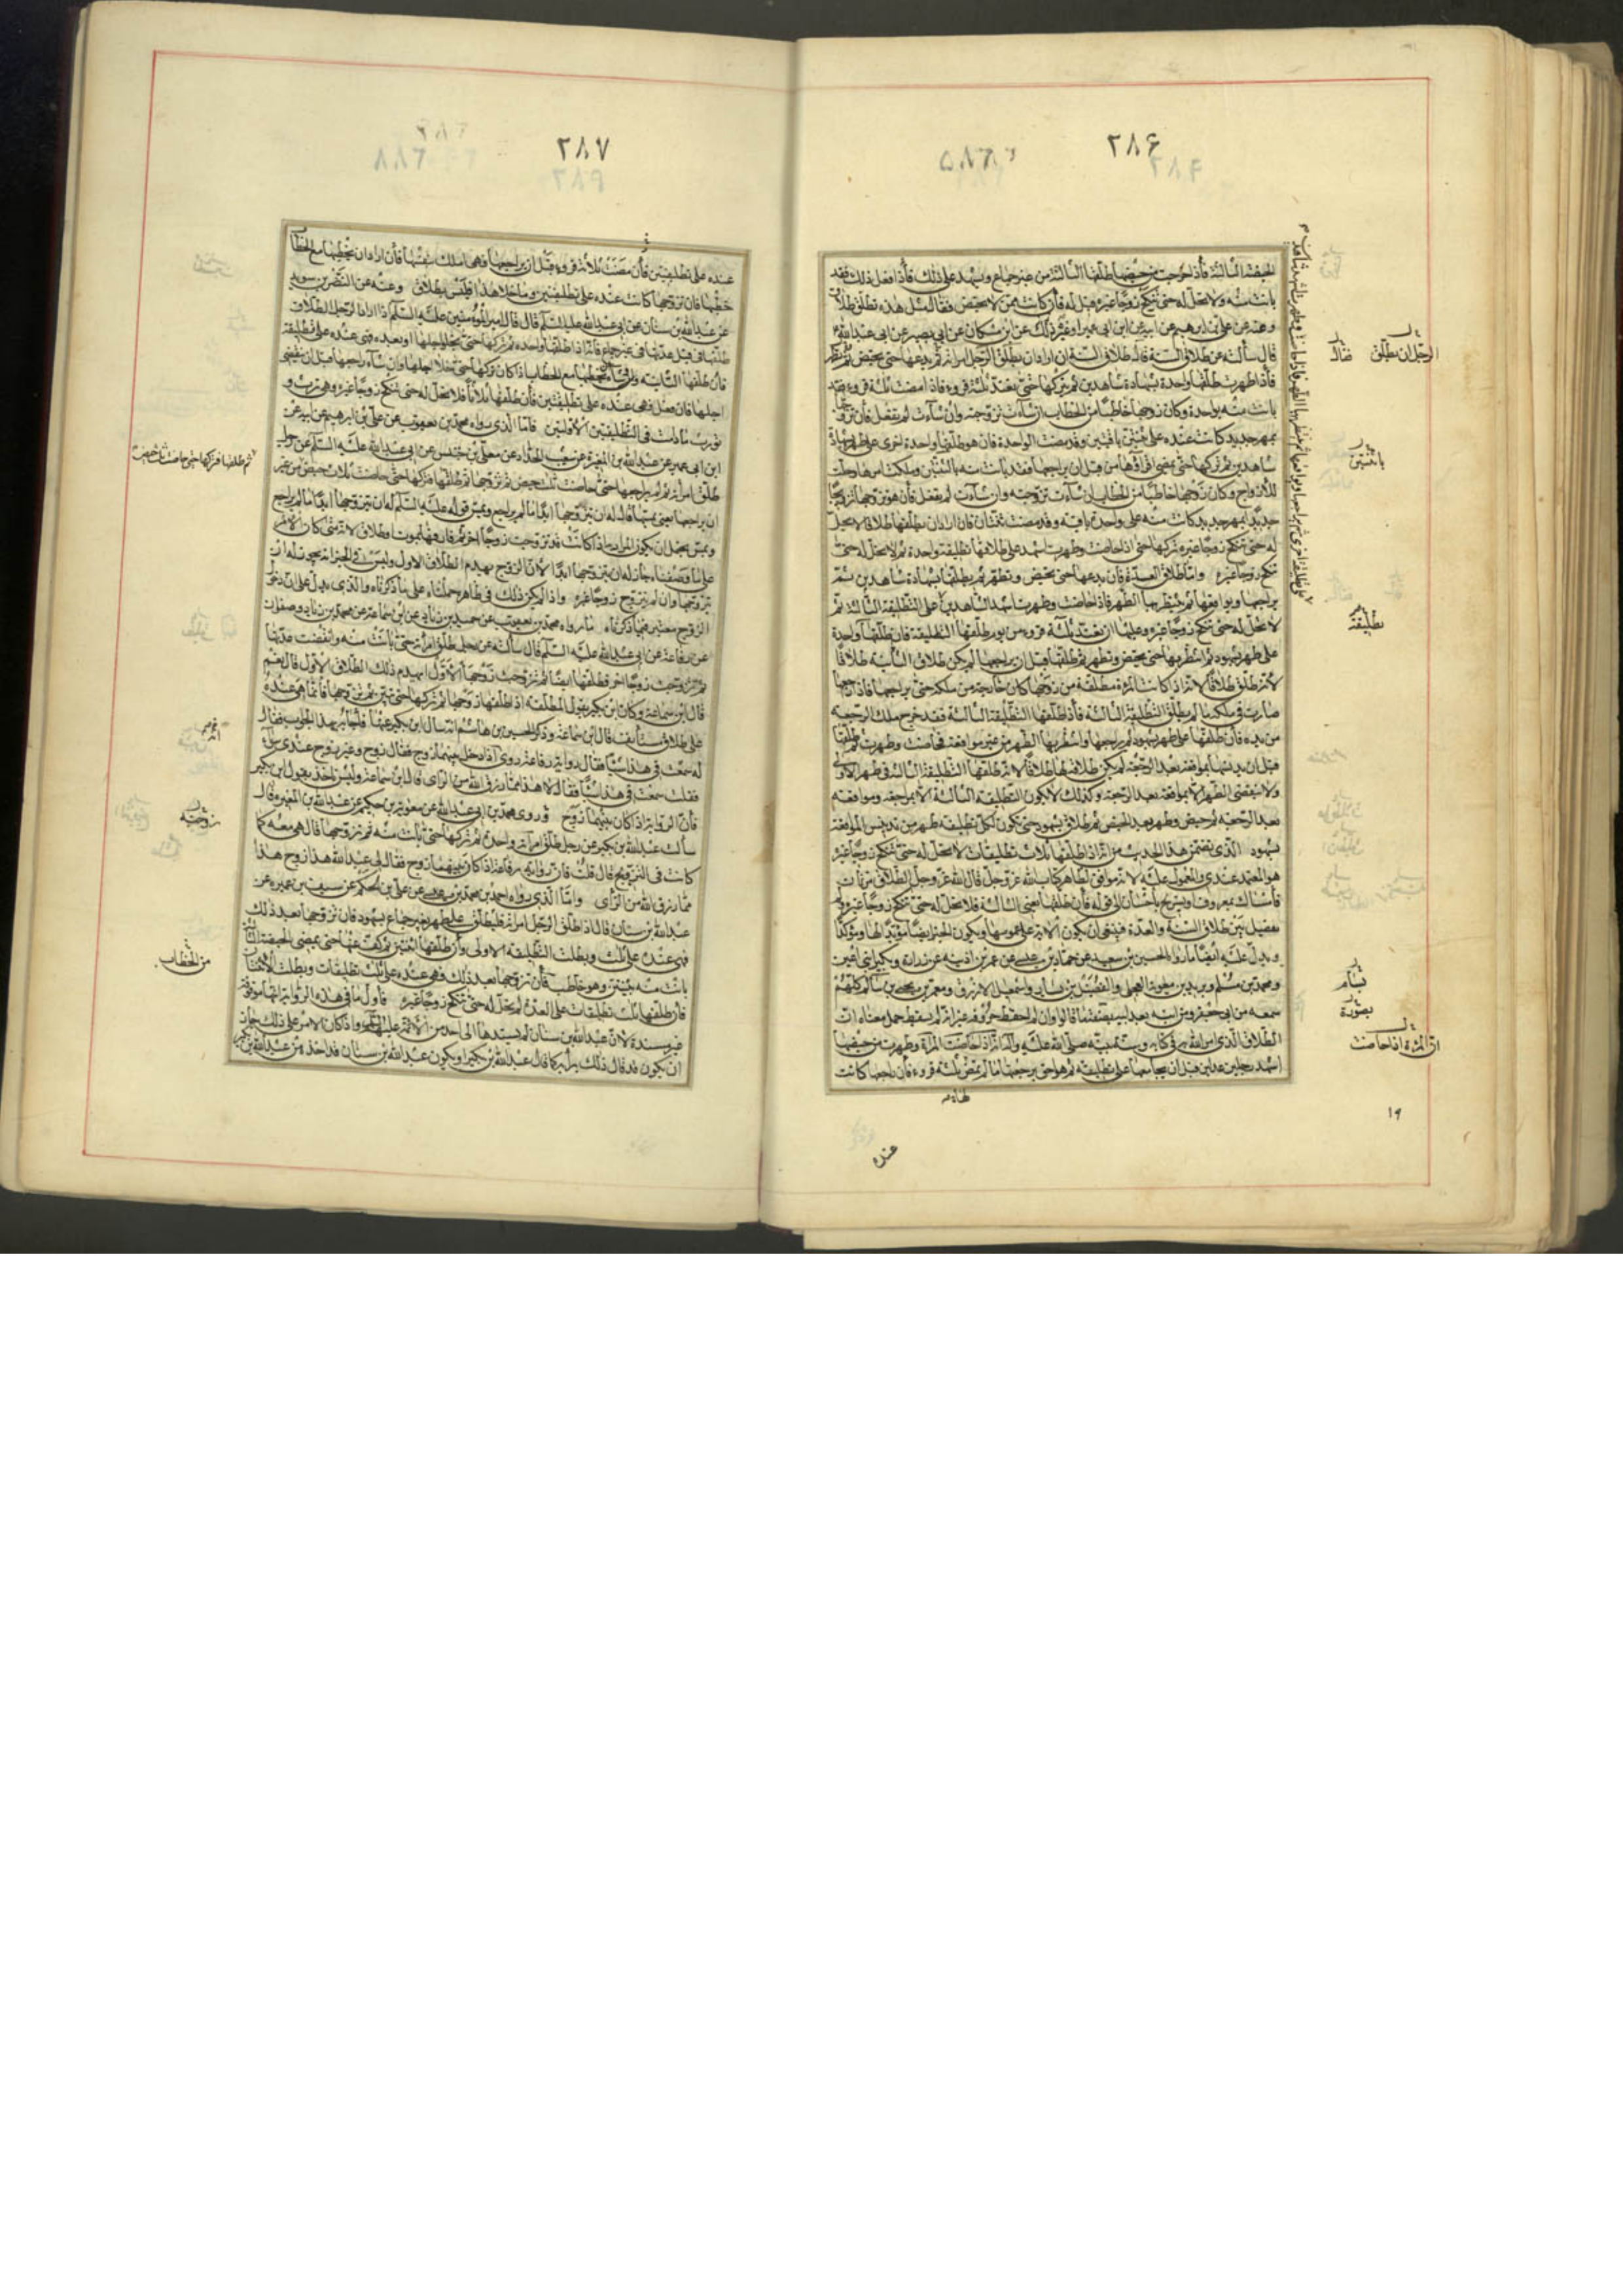 ٢٨۶
الحيضة الثالثة فاذا خرجت من حيضها طلقها الثالثة من غير جماع ويشهد على ذلك فاذا فعل ذلك فقد
بانت منه ولا تحل له حتى تنكح زوجا غيره قيل له فان كانت ممن لا تحيض فقال مثل هذه تطلق طلاق
وعنه عن علي بن ابرهيم عن ابيه عن ابن ابي عمير او غيره عن ابن مسكان عن ابي بصير عن ابي عبد الله
قال سألته عن طلاق السنة قال طلاق السنة ان اراد ان يطلق الرجل امرأته يدعها حتى تحيض ثم تطهر
فاذا طهرت طلقها واحدة بشهادة شاهدين ثم يتركها حتى تعتد ثلثة قروء فاذا مضت ثلثة قروء فقد
بانت منه بواحدة وكان زوجها خاطبا من الخطاب ان شاءت تزوجته وان شاءت لم تفعل فان تزوجها
بمهر جديد كانت عنده على ثنتين باقيتين وقد مضت الواحدة فان هو طلقها واحدة اخرى على طهر بشهادة
شاهدين ثم تركها حتى تمضي اقراؤها من قبل ان يراجعها فقد بانت منه باثنتين وملكت امرها وحلت
للازواج وكان زوجها خاطبا من الخطاب ان شاءت تزوجته وان شاءت لم تفعل فان هو تزوجها تزويجا
جديدا بمهر جديد كانت معه على واحدة باقية وقد مضت ثنتان فان اراد ان يطلقها طلاقا لا تحل
له حتى تنكح زوجا غيره تركها حتى اذا حاضت وطهرت اشهد على طلاقها تطليقة واحدة ثم لا تحل له حتى
تنكح زوجا غيره واما طلاق العدة فان يدعها حتى تحيض وتطهر ثم يطلقها بشهادة شاهدين ثم
يراجعها ويواقعها ثم ينتظر بها الطهر فاذا حاضت وطهرت اشهد الشاهدين على التطليقة الثالثة ثم
لا تحل له حتى تنكح زوجا غيره وعليها ان تعتد ثلثة قروء من يوم طلقها التطليقة فان طلقها واحدة
على طهر بشهود ثم انتظر بها حتى تحيض وتطهر ثم طلقها قبل ان يراجعها لم يكن طلاق الثانية طلاقا
لانه طلق طلاقا لانه اذا كانت المرأة مطلقة من زوجها كان خارجة من ملكه حتى يراجعها فاذا راجعها
صارت في ملكه ما لم يطلق التطليقة الثالثة فاذا طلقها التطليقة الثالثة فقد خرج ملك الرجعة
من يده فان طلقها على طهر بشهود ثم راجعها وانتظر بها الطهر من غير مواقعة فحاضت وطهرت ثم طلقها
قبل ان يدنسها بمواقعة بعد الرجعة لم يكن طلاقه لها طلاقا لانه طلقها التطليقة الثانية في طهر الاولى
ولا ينقضي الطهر الا بمواقعة بعد الرجعة وكذلك لا تكون التطليقة الثالثة الا بمراجعة ومواقعة
بعد الرجعة ثم حيض وطهر بعد الحيض ثم طلاق بشهود حتى تكون لكل تطليقة طهر من تدنيس المواقعة
بشهود الذي يتضمن هذا الحديث من انه اذا طلقها ثلاث تطليقات لا تحل له حتى تنكح زوجا غيره
هو المعتمد عندي والمعمول عليه لانه موافق لظاهر كتاب الله عز وجل قال الله عز وجل الطلاق مرتان
فامساك بمعروف او تسريح باحسان الى قوله فان طلقها يعني الثالثة فلا تحل له حتى تنكح زوجا غيره ولم
يفصل بين طلاق السنة والعدة فينبغي ان يكون الاية على عمومها ويكون الخبر ايضا مؤيدا لها ومؤكدا
ويدل عليه ايضا ما رواه الحسين بن سعيد عن حماد بن عيسى عن عمر بن اذينه عن زرارة وبكير ابني اعين
ومحمد بن مسلم وبريد بن معوية العجلي والفضيل بن يسار واسمعيل الازرق ومعمر بن يحيى بن سالم كلهم
سمعه من ابي جعفر ومن ابنه بعد ابيه بصفة ما قالوا وان لم احفظ حروفه غير انه لم يسقط جمل معناه ان
الطلاق الذي امر الله به في كتابه وسنة نبيه صلى الله عليه واله انه اذا حاضت المرأة وطهرت من حيضها
اشهد رجلين عدلين قبل ان يجامعها على تطليقة ثم هو احق برجعتها ما لم تمض ثلثة قروء فان راجعها كانت
الرجل ان يطلق
فقال
باثنتين
تطليقة
يسام
بصورة
ان المرأة اذا حاضت
١٩
عنده
٢٨٧
عنده على تطليقتين فان مضت ثلاثة قروء قبل ان يراجعها فهي املك بنفسها فان اراد ان يخطبها مع الخطاب
خطبها فان تزوجها كانت عنده على تطليقتين وما خلا هذا فليس بطلاق وعنه عن النضر بن سويد
عن عبد الله بن سنان عن ابي عبد الله عليه السلم قال قال امير المؤمنين عليه السلم اذا اراد الرجل الطلاق
طلقها في قبل عدتها في غير جماع فانه اذا طلقها واحدة ثم تركها حتى يخلو اجلها او بعده فهي عنده على تطليقة
فان طلقها الثانية وشاء ان يخطبها مع الخطاب اذا كان تركها حتى خلا اجلها وان شاء راجعها قبل ان ينقضي
اجلها فان فعل فهي عنده على تطليقتين فان طلقها ثلاثا فلا تحل له حتى تنكح زوجا غيره وهي ترث و
تورث ما دامت في التطليقتين الاولتين فاما الذي رواه محمد بن يعقوب عن علي بن ابرهيم عن ابيه عن
ابن ابي عمير عن عبد الله بن المغيرة عن شعيب الحداد عن معلى بن خنيس عن ابي عبد الله عليه السلم عن رجل
طلق امرأته ثم لم يراجعها حتى حاضت ثلث حيض ثم تزوجها ثم طلقها فتركها حتى حاضت ثلاث حيض من غير
ان يراجعها يعني يمسها قال له ان يتزوجها ابدا ما لم يراجع ويمس قوله عليه السلم له ان يتزوجها ابدا ما لم يراجع
ويمس يحتمل ان يكون المراد به اذا كانت قد تزوجت زوجا اخر ثم فارقها بموت او طلاق لانه متى كان الامر
على ما وصفناه جاز له ان يتزوجها ابدا لان الزوج يهدم الطلاق الاول وليس في الخبر انه يجوز له ان
يتزوجها وان لم تتزوج زوجا غيره واذا لم يكن ذلك في ظاهره حملناه على ما ذكرناه والذي يدل على ان دخول
الزوج معتبر فيما ذكرناه ما رواه محمد بن يعقوب عن حميد بن زياد عن ابن سماعة عن محمد بن زياد وصفوان
عن رفاعة عن ابي عبد الله عليه السلم قال سألته عن رجل طلق امرأته حتى بانت منه وانقضت عدتها
ثم تزوجت زوجا اخر فطلقها ايضا ثم تزوجت زوجها الاول ايهدم ذلك الطلاق الاول قال نعم
قال ابن سماعة وكان ابن بكير يقول المطلقة اذا طلقها زوجها ثم تركها حتى تبين ثم تزوجها فانما هي عنده
على طلاق مستأنف قال ابن سماعة وذكر الحسين بن هاشم انه سأل ابن بكير عنها فاجابه بهذا الجواب فقال
له سمعت في هذا شيئا فقال رواية رفاعة فقال ان رفاعة روى اذا دخل بينهما زوج فقال زوج وغير زوج عندي سواء
فقلت سمعت في هذا شيئا فقال لا هذا مما رزق الله من الرأي قال ابن سماعة وليس احد يأخذ بقول ابن بكير
فان الرواية اذا كان بينهما زوج وروى محمد بن ابي عبد الله عن معوية بن حكيم عن عبد الله بن المغيرة قال
سألت عبد الله بن بكير عن رجل طلق امرأته واحدة ثم تركها حتى بانت منه ثم تزوجها قال هي معه كما
كانت في التزويج قال قلت فان رواية رفاعة اذا كان بينهما زوج فقال لي عبد الله هذا زوج هذا
مما رزق الله من الرأي واما الذي رواه احمد بن محمد بن عيسى عن علي بن الحكم عن سيف بن عميرة عن
عبد الله بن سنان قال اذا طلق الرجل امرأته فليطلق على طهر بغير جماع بشهود فان تزوجها بعد ذلك
فهي عنده على ثلث وبطلت التطليقة الاولى وان طلقها اثنتين ثم كف عنها حتى تمضي الحيضة الثالثة
بانت منه بثنتين وهو خاطب فان تزوجها بعد ذلك فهي عنده على ثلث تطليقات وبطلت الاثنتان
فان طلقها ثلث تطليقات على العدة لم تحل له حتى تنكح زوجا غيره فاول ما في هذه الرواية انها موقوفة
غير مسندة لان عبد الله بن سنان لم يسندها الى احد من الائمة عليهم السلم واذا كان الامر على ذلك جاز
ان يكون قد قال ذلك برأيه كما قال عبد الله بن بكير او يكون عبد الله بن سنان قد اخذه من عبد الله بن بكير
ثم طلقها فتركها حتى حاضت ثلث حيض
زوجته
من الخطاب